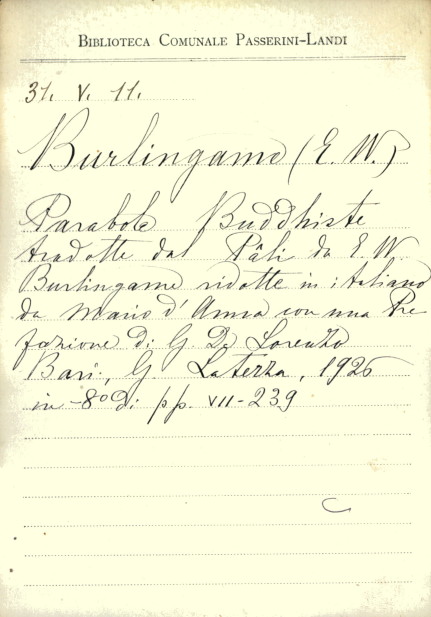 BIBLIOTECA COMUNALE PASSERINI-LANDI
31. V. 11.
Burlingame (E. W.)
Parabole Buddhiste
tradotte dal Pâli da E. W.
Burlingame ridotte in italiano
da Mario d'Anna con una Pre
fazione di G. De Lorenzo
Bari, G. Laterza, 1926
in-8º di pp. VII-239